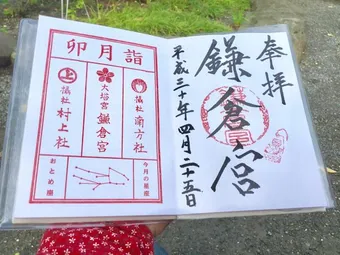 奉拝
鎌倉宮
平成三十年四月二十五日
卯月詣
摂社
南方社
大塔宮
鎌倉宮
摂社
村上社
今月の星座
おとめ座